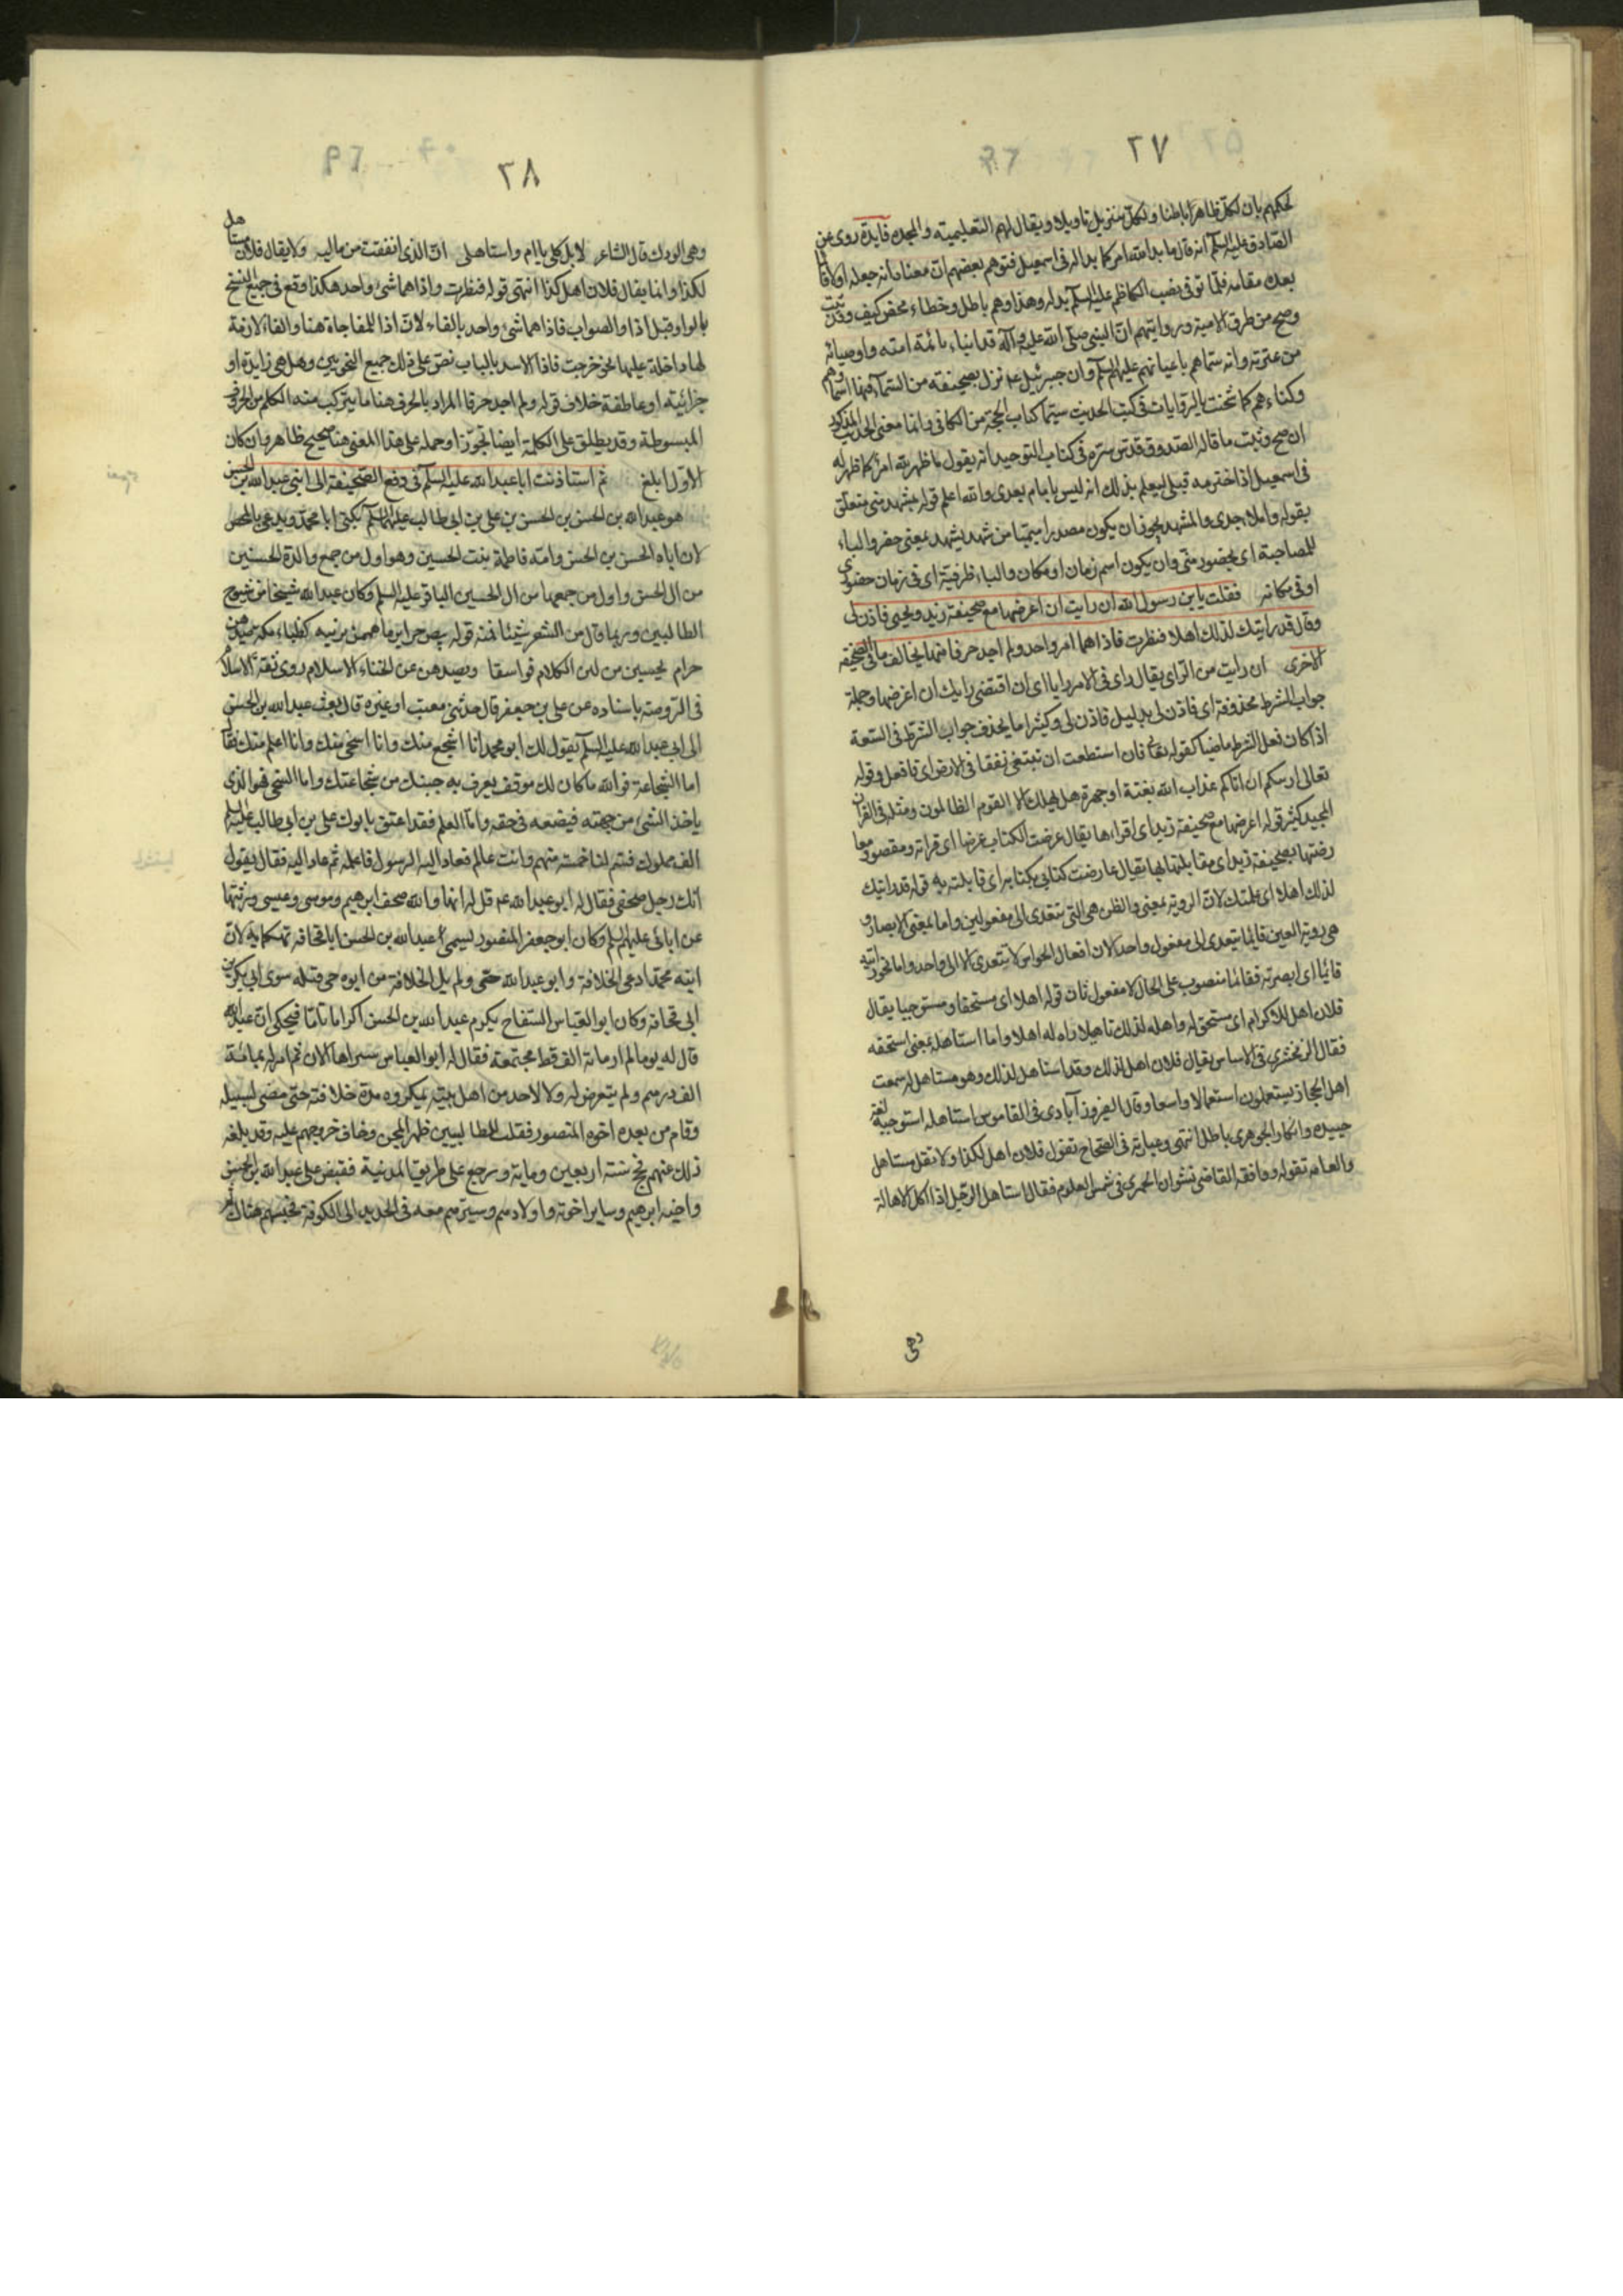 ٢٧
لحكمهم بان لكل ظاهر باطنا ولكل تنزيل تاويلا ويقال لهم التعليمية والملحدة فايدة روى عن
الصادق عليه السلم انه قال ما بدا لله امر كما بدا له فى اسمعيل فتوهم بعضهم ان معناه انه جعله اولا قائما
بعده مقامه فلما توفى نصب الكاظم عليه السلم بدله وهذا وهم باطل وخطاء محض كيف وقد ثبت
وصح من طرق الامامية ورواياتهم ان النبى صلى الله عليه وآله قد انباء بائمة امته واوصيائه
من عترته وانه سماهم باعيانهم عليهم السلم وان جبرئيل ع نزل بصحيفة من السماء فيها اسماؤهم
وكناهم كما شحنت بالروايات فى كتب الحديث سيما كتاب الحجة من الكافى وانما معنى الحديث المذكور
ان صح وثبت ما قاله الصدوق قدس سره فى كتاب التوحيد انه يقول ما ظهر لله امر كما ظهر له
فى اسمعيل اذ اخترمه قبلى ليعلم بذلك انه ليس بامام بعدى والله اعلم قوله بمشهد منى متعلق
بقوله واملاه جدى والمشهد يجوز ان يكون مصدرا ميميا من شهد يشهد بمعنى حضر والباء
للمصاحبة اى بحضور منى وان يكون اسم زمان او مكان والباء ظرفية اى فى زمان حضورى
او فى مكانه فقلت يابن رسول الله ان رايت ان اعرضها مع صحيفة زيد ويحيى فاذن لى
وقال قد رايتك لذلك اهلا فنظرت فاذا هما امر واحد ولم اجد حرفا منها يخالف ما فى الصحيفة
الاخرى ان رايت من الراى يقال راى فى الامر رايا اى ان اقتضى رايك ان اعرضها وجملة
جواب الشرط محذوفة اى فاذن لى بدليل فاذن لى وكثيرا ما يحذف جواب الشرط فى السعة
اذا كان فعل الشرط ماضيا كقوله تعالى فان استطعت ان تبتغى نفقا فى الارض اى فافعل وقوله
تعالى ارايتكم ان اتاكم عذاب الله بغتة او جهرة هل يهلك الا القوم الظالمون ومثله فى القران
المجيد كثير قوله اعرضها مع صحيفة زيد اى اقراءها يقال عرضت الكتاب عرضا اى قراته ومقصوده معا
رضتها بصحيفة زيد اى مقابلتها بها يقال عارضت كتابى بكتابه اى قابلته به قوله قد رايتك
لذلك اهلا اى علمتك لان الروية بمعنى والظن هى التى تتعدى الى مفعولين واما بمعنى الابصار و
هى روية العين فانما يتعدى الى مفعول واحد لان افعال الحواس لا يتعدى الا الى واحد واما نحو رايته
قائما اى ابصرته فقائما منصوب على الحال لا مفعول ثان قوله اهلا اى مستحقا ومستوجبا يقال
فلان اهل للاكرام اى مستحق له واهله لذلك تاهيلا واه له اهلا واما استاهله بمعنى استحقه
فقال الزمخشرى فى الاساس يقال فلان اهل لذلك وقد استاهل لذلك وهو مستاهل له سمعت
اهل الحجاز يستعملون استعمالا واسعا وقال الفيروز آبادى فى القاموس استاهله استوجبه لغة
جيدة وانكار الجوهرى باطل انتهى وعبارته فى الصحاح تقول فلان اهل لكذا ولا تقل مستاهل
والعامة تقوله ووافقه القاضى نشوان الحميرى فى شمس العلوم فقال استاهل الرجل اذا اكل الاهالة
وهى
٢٨
وهى الودك قال الشاعر لا بل كلى ياام واستاهلى ان الذى انفقت من ماليه ولا يقال فلان مستاهل
لكذا وانما يقال فلان اهل كذا انتهى قوله فنظرت واذا هما شى واحد هكذا وقع فى جميع النسخ
بالواو قبل اذا والصواب فاذا هما شىء واحد بالفاء لان اذا للمفاجاة هنا والفاء لازمة
لها داخلة عليها نحو خرجت فاذا الاسد بالباب نص على ذلك جميع النحويين وهل هى زايدة او
جزائية او عاطفة خلاف قوله ولم اجد حرفا المراد بالحرف هنا ما يتركب منه الكلم من الحروف
المبسوطة وقد يطلق على الكلمة ايضا تجوزا وحمله على هذا المعنى هنا صحيح ظاهر وان كان
الاول ابلغ ثم استاذنت ابا عبد الله عليه السلم فى دفع الصحيفة الى ابنى عبد الله بن الحسن
هو عبد الله بن الحسن بن الحسن بن على بن ابى طالب عليهما السلم يكنى ابا محمد ويدعى بالمحض
لان اباه الحسن بن الحسن وامه فاطمة بنت الحسين وهو اول من جمع ولادة الحسنين
من ال الحسن واول من جمعها من ال الحسين الباقر عليه السلم وكان عبد الله شيخا من شيوخ
الطالبيين وربما قال من الشعر شيئا فمنه قوله بيض حراير ما هممن بريبة كظباء مكة صيدهن
حرام يحسبن من لين الكلام فواسقا ويصدهن عن الخناء الاسلام روى ثقة الاسلام
فى الروضة باسناده عن على بن جعفر قال حدثنى معتب او غيره قال بعث عبد الله بن الحسن
الى ابى عبد الله عليه السلم يقول لك ابو محمد انا اشجع منك وانا اسخى منك وانا اعلم منك فقال
اما الشجاعة فوالله ما كان لك موقف يعرف به جبنك من شجاعتك واما السخى فهو الذى
ياخذ الشىء من جهته فيضعه فى حقه واما العلم فقد اعتق ابوك على بن ابى طالب عليه السلم
الف مملوك فسم لنا خمسة منهم وانت عالم فعاد اليه الرسول فاعلمه ثم عاد اليه فقال يقول
انك رجل صحفى فقال له ابو عبد الله ع قل له انها والله صحف ابرهيم وموسى وعيسى ورثتها
عن ابائى عليهم السلم وكان ابو جعفر المنصور يسمى عبد الله بن الحسن ابا قحافة تهكما به لان
ابنه محمدا ادعى الخلافة وابو عبد الله حى ولم يل الخلافة من ابوه حى قبله سوى ابى بكر بن
ابى قحافة وكان ابو العباس السفاح يكرم عبد الله بن الحسن اكراما تاما فيحكى ان عبد الله
قال له يوما لم ار مائة الف قط مجتمعة فقال له ابو العباس ستراها الان ثم امر له بمائة
الف درهم ولم يتعرض له ولا لاحد من اهل بيته بمكروه مدة خلافته حتى مضى لسبيله
وقام من بعده اخوه المنصور فقلب للطالبيين ظهر المجن وخاف خروجهم عليه وقد بلغه
ذلك عنهم فحج سنة اربعين وماية ورجع على طريق المدينة فقبض على عبد الله بن الحسن
واخيه ابرهيم وساير اخوته واولادهم وسيرهم معه فى الحديد الى الكوفة فحبسهم هناك